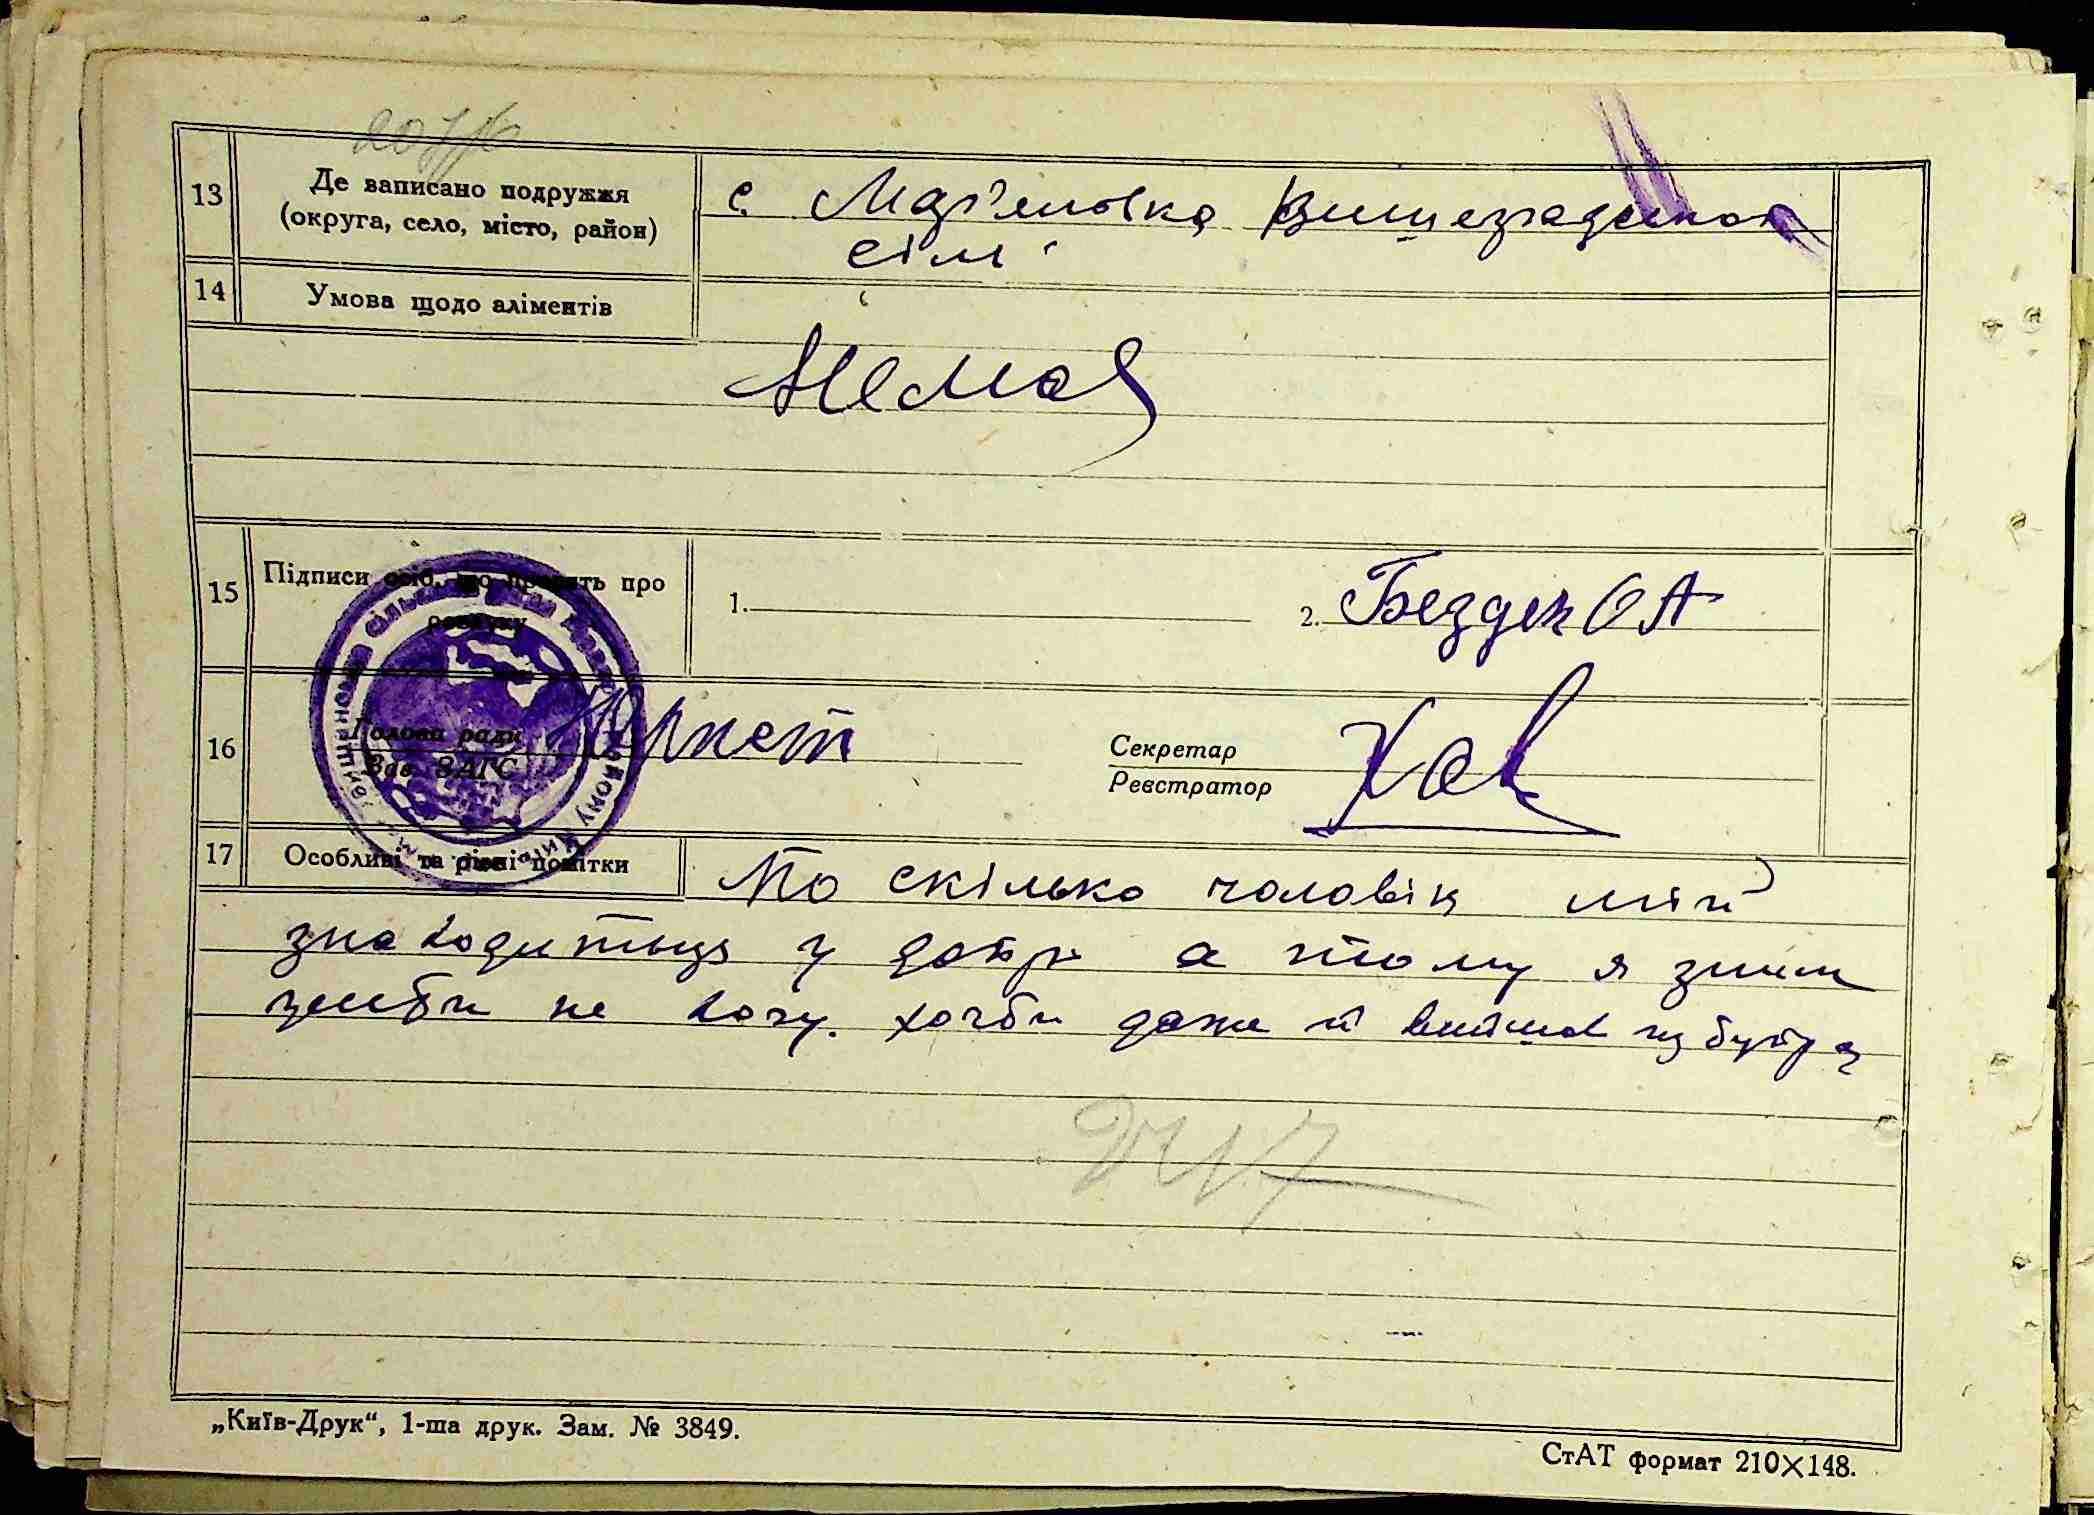 13
Де записано подружжя
(округа, село, місто, район)
с. Мар'яновка
сіл
14
Умова щодо аліментів
Немає
15
Підписи осіб, що просять про
розлуку
1.
2. Бездек О А
16
Голова ради
Зав. ЗАГС
Секретар
Реєстратор
17
Особливі та різні помітки
По скілько чоловік мій
знаходитьця у а тому я зним
не хочу. хочби даже й вийшов із
„Київ-Друк“, 1-ша друк. Зам. № 3849.
СтАТ формат 210×148.